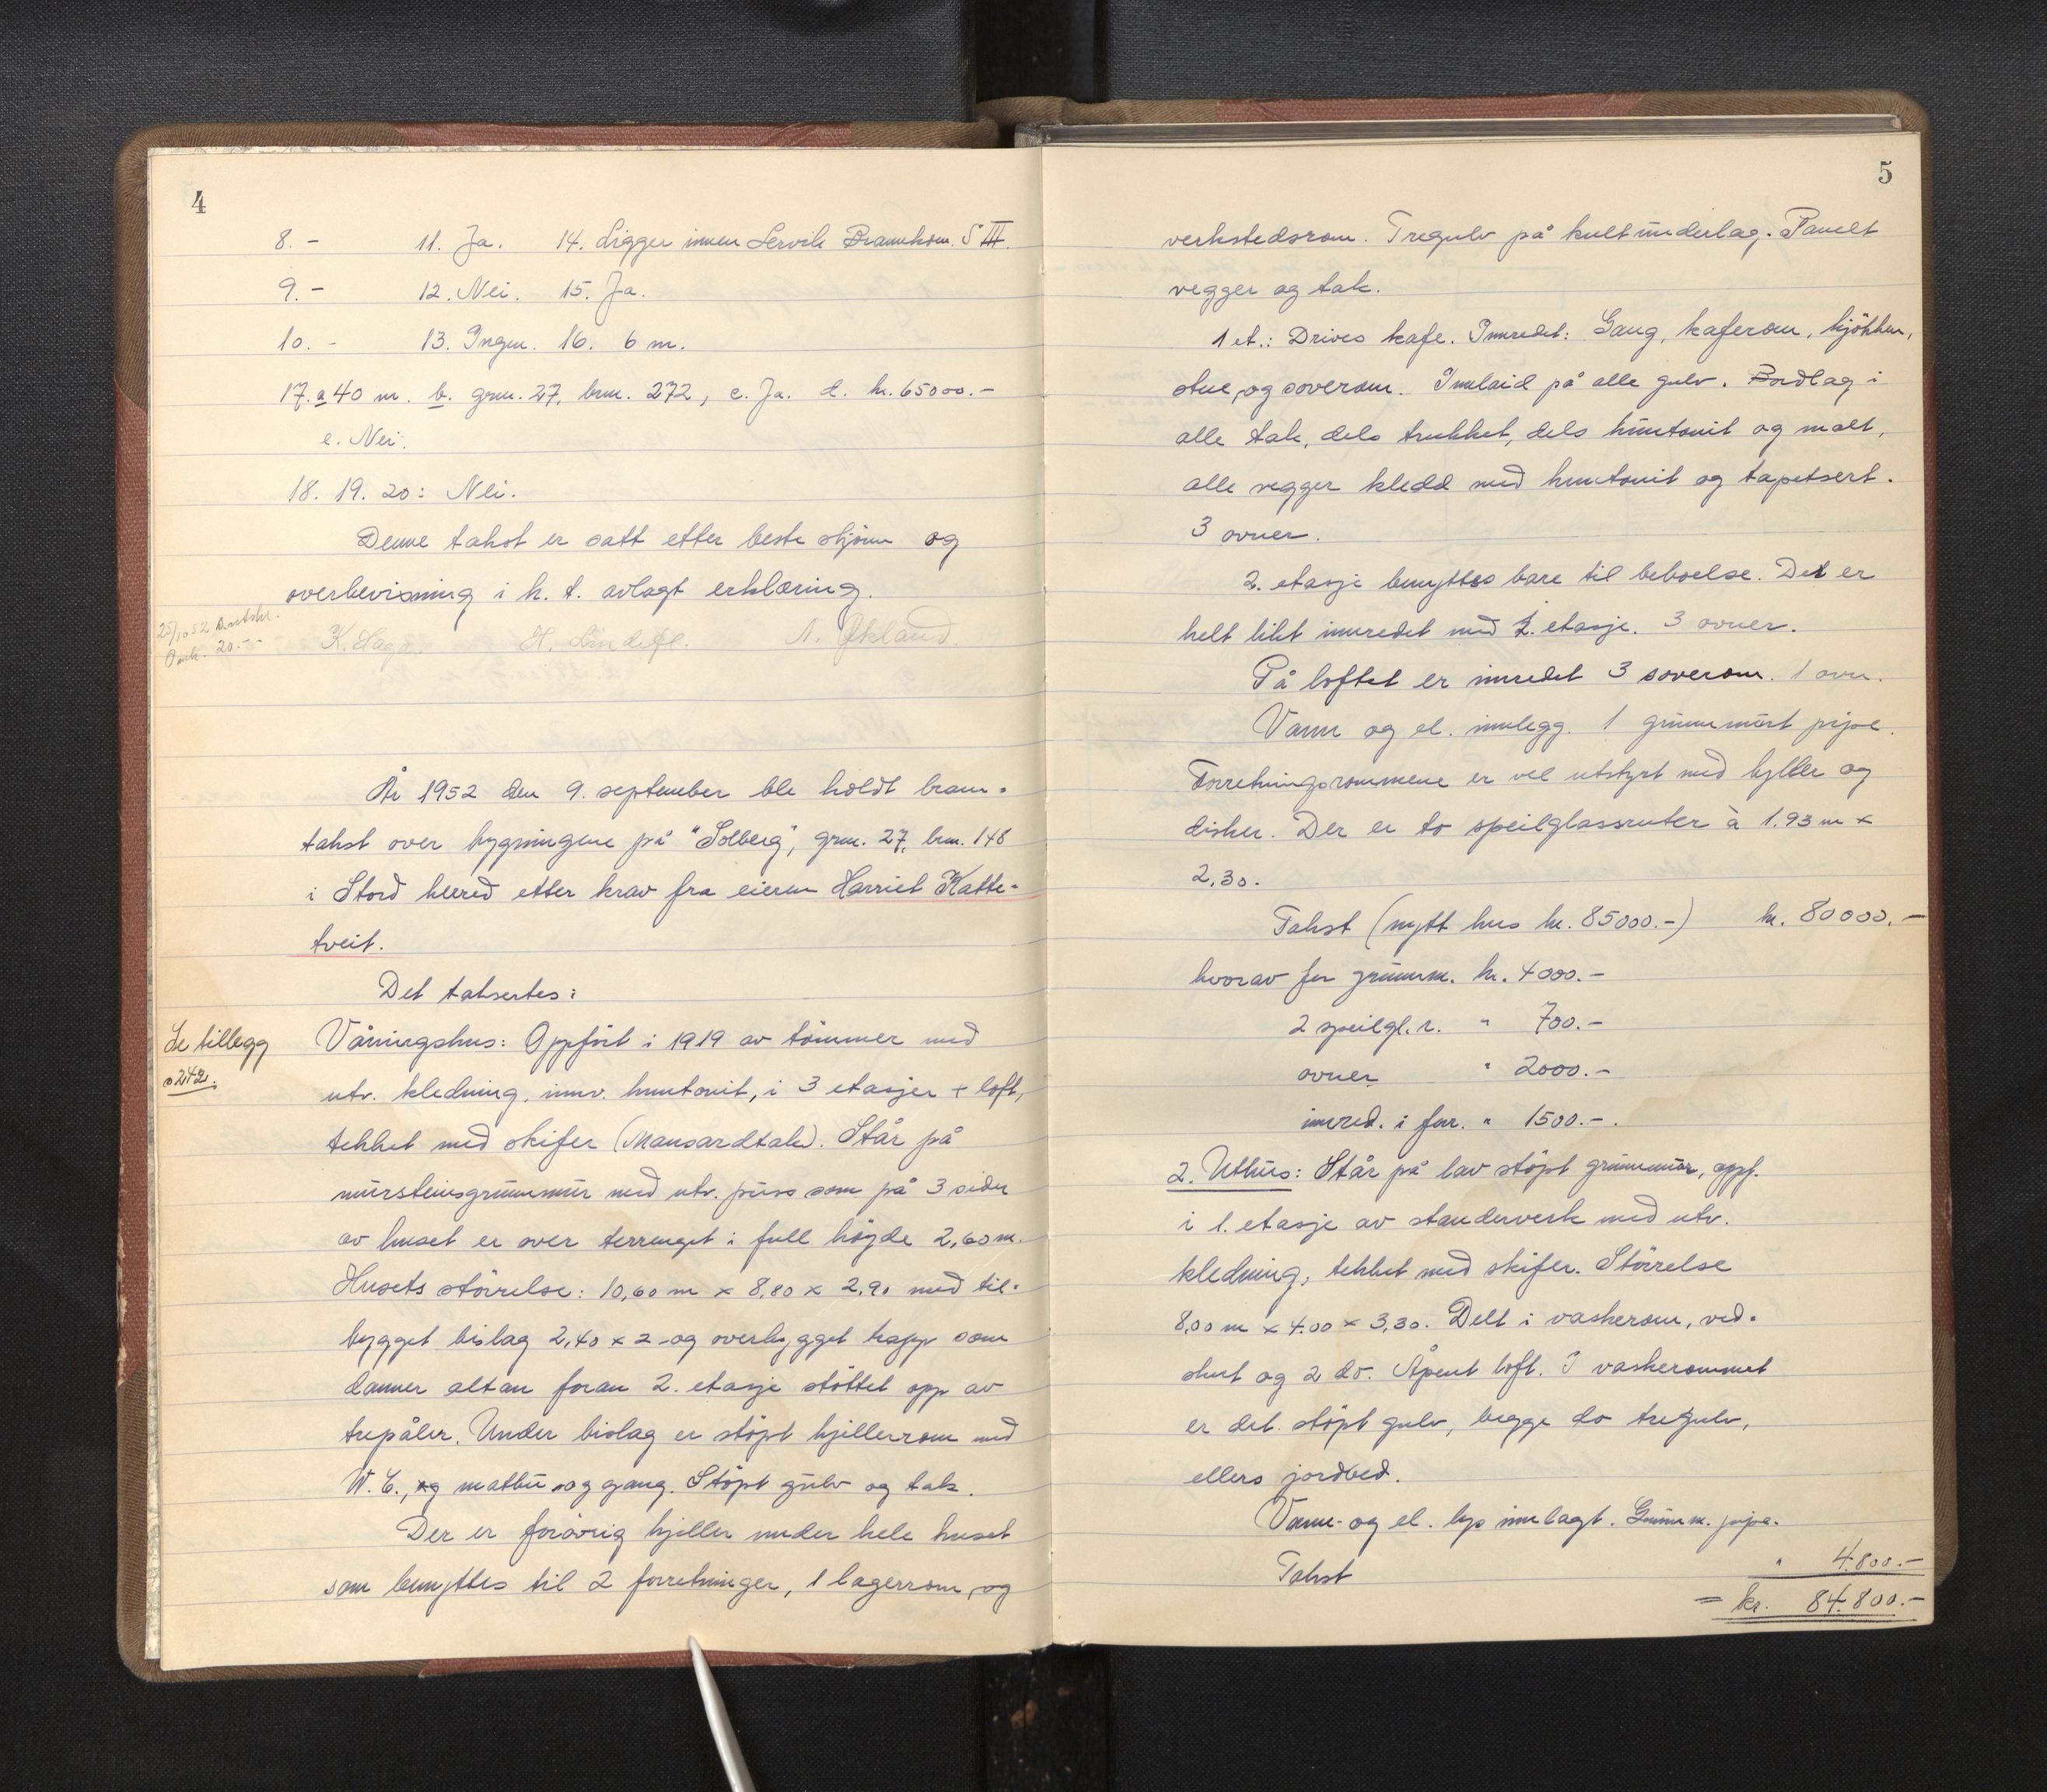 4
8. - 11. Ja. 14. Ligger innen Lervik Brannkom. S III.
9. - 12. Nei. 15. Ja.
10. - 13. Ingen. 16. 6 m.
17. a 40 m. b. gnr. 27, bnr. 272, c. Ja. d. kr. 65000.-
e. Nei.
18. 19. 20: Nei.
Denne takst er satt etter beste skjønn og
overbevisning i h. t. avlagt erklæring.
25/10 52 Utskr.
20.--
K. Haga. H. A. Økland
År 1952 den 9. september ble holdt brann-
takst over bygningene på "Solberg", gnr. 27, bnr. 148
i Stord herred etter krav fra eieren Harriet Katte-
tveit.
Det takseres:
Se tillegg
s 242.
Våningshus: Oppført i 1919 av tömmer med
utv. kledning, innv. huntonit, i 3 etasjer + loft,
tekket med skifer (Mansardtak). Står på
mursteinsgrunnmur med utv. puss som på 3 sider
av huset er over terrenget i full höyde 2,60 m.
Husets störrelse: 10,60 m x 8,80 x 2,90 med til-
bygget bislag 2,40 x 2 og overbygget trapp som
danner altan foran 2. etasje stöttet opp av
trepåler. Under bislag er stöpt kjellerrom med
W. C., og matbu og gang. Stöpt gulv og tak.
Der er forövrig kjeller under hele huset
som benyttes til 2 forretninger, 1 lagerrom, og
5
verkstedsrom. Tregulv på kultunderlag. Panelt
vegger og tak.
1 et.: Drives kafe. Innredet: Gang, kaferom, kjökken,
stue, og soverom. Innlaid på alle gulv. Bordlag i
alle tak, dels trukket, dels huntonit og malt,
alle vegger kledd med huntonit og tapetsert.
3 ovner.
2. etasje benyttes bare til beboelse. Det er
helt likt innredet med 1. etasje. 3 ovner.
På loftet er innredet 3 soverom. 1 ovn.
Vann og el. innlegg. 1 grunnmurt pipe.
Forretningsrommene er vel utstyrt med hyller og
disker. Der er to speilglassruter à 1.93 m x
2,30.
Takst (nytt hus kr. 85000.-) kr. 80000.-
hvorav for grunnm. kr. 4000.-
2 speilgl. r. " 700.-
ovner " 2000.-
innred. i forr. " 1500.-.
2. Uthus: Står på lav stöpt grunnmur, oppf.
i 1. etasje av standerverk med utv.
kledning, tekket med skifer. Störrelse
8,00 m x 4.00 x 3,30. Delt i vaskerom, ved-
skut og 2 do. Åpent loft. I vaskerommet
er det stöpt gulv, begge do tregulv,
ellers jordbed.
Vann- og el. lys innlagt. Grunnm. pipe.
Takst " 4.800.-
= kr. 84.800.-